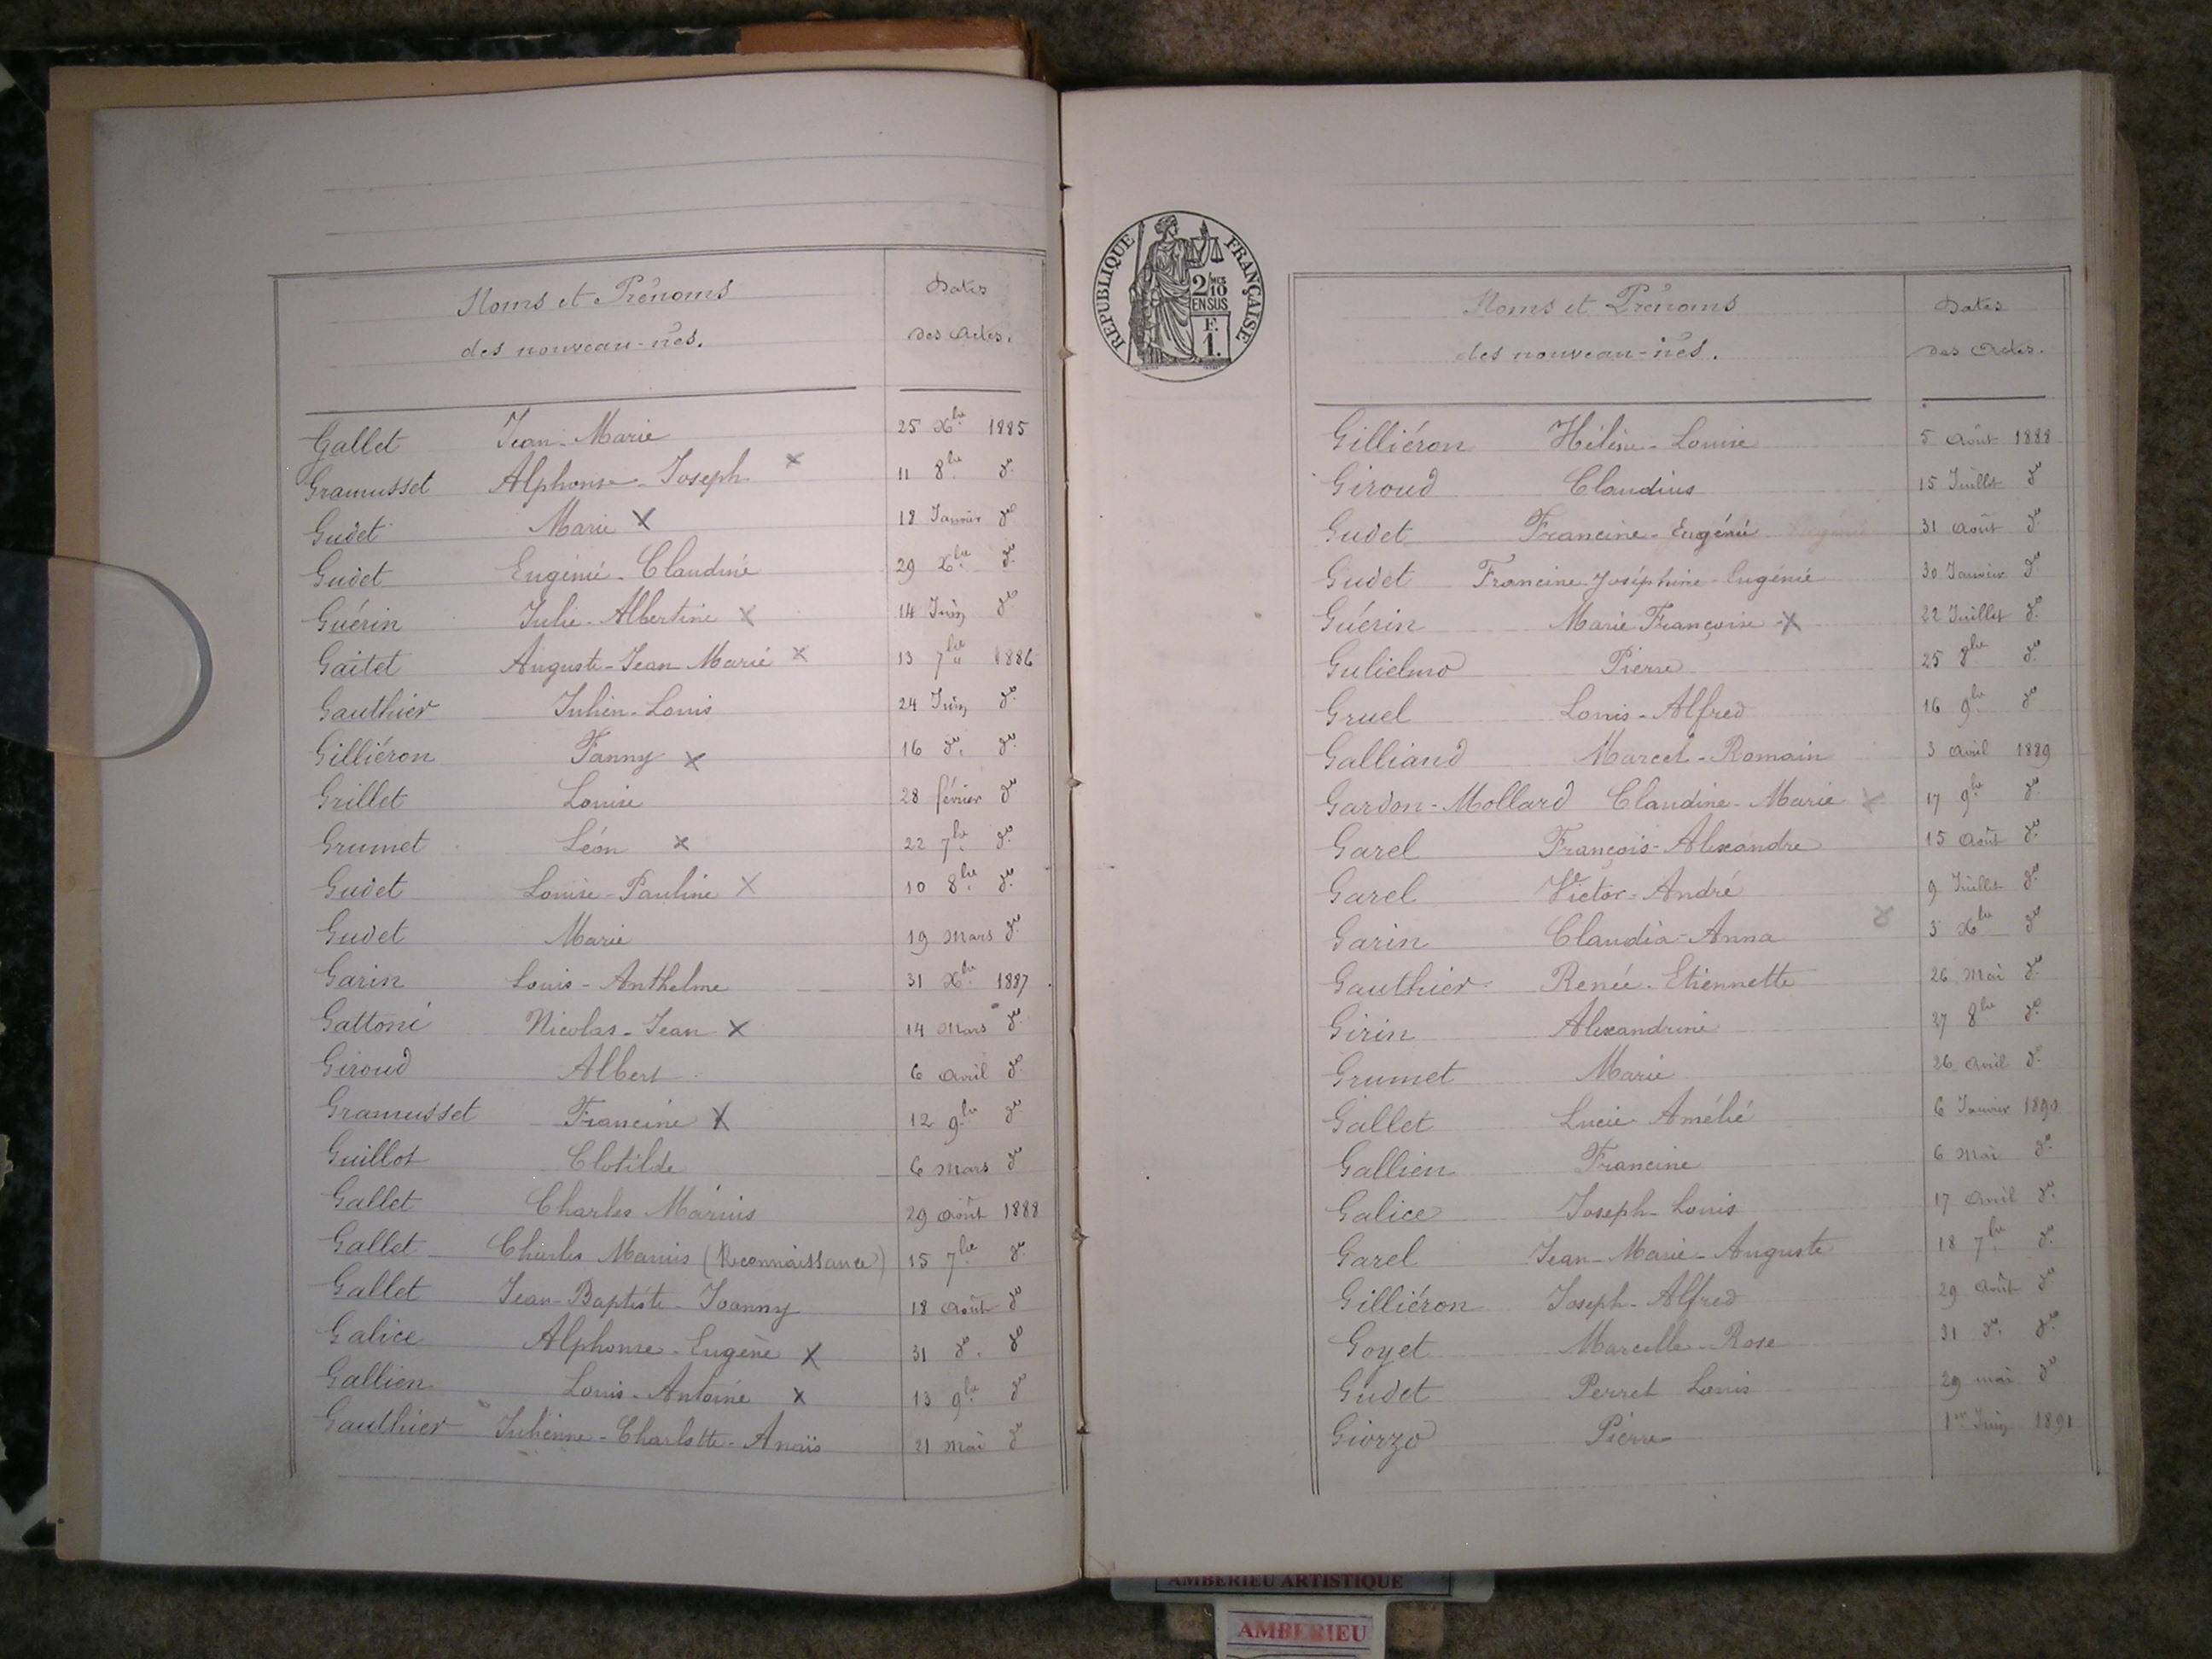 Noms et Prénoms
des nouveau-nés.
Dates
des actes.
Gallet Jean-Marie 25 Xbre 1885
Gramusset Alphonse-Joseph x 11 8bre do
Gudet Marie X 18 Janvier do
Gudet Eugénie-Claudine 29 Xbre do
Guérin Julie-Albertine x 14 Juin do
Gaitet Auguste-Jean-Marie x 13 7bre 1886
Gauthier Julien-Louis 24 Juin do
Gilliéron Fanny x 16 do. do.
Grillet Louise 28 février do
Grumet Léon x 22 7bre do
Gudet Louise-Pauline X 10 8bre do.
Gudet Marie 19 mars do
Garin Louis-Anthelme 31 Xbre 1887
Gattoni Nicolas-Jean x 14 mars do
Giroud Albert 6 avril do
Gramusset Francine X 12 9bre do
Guillot Clotilde 6 mars do
Gallet Charles Marius 29 août 1888
Gallet Charles Marius (Reconnaissance) 15 7bre do
Gallet Jean-Baptiste-Joanny 18 août do
Galice Alphonse-Eugène X 31 do. do
Gallien Louis-Antoine x 13 9bre do
Gauthier Julienne-Charlotte-Anaïs 21 mai do
REPUBLIQUE FRANÇAISE
2/10mes
EN SUS
F.
1.
Noms et Prénoms
des nouveau-nés.
Dates
des actes.
Gilliéron Hélène-Louise 5 août 1888
Giroud Claudius 15 Juillet do
Gudet Francine-Eugénie 31 août do
Gudet Francine-Joséphine-Eugénie 30 Janvier do
Guérin Marie Françoise x 22 Juillet do.
Gulielmo Pierre 25 do
Gruel Louis-Alfred 16 9bre do
Galliand Marcel-Romain 3 avril 1889
Gardon-Mollard Claudine-Marie x 17 9bre do
Garel François-Alexandre 15 août do
Garel Victor-André 9 Juillet do
Garin Claudia-Anna 3 Xbre do
Gauthier Renée-Etiennette 26 mai do
Girin Alexandrine 27 8bre do
Grumet Marie 26 avril do
Gallet Lucie Amélie 6 Janvier 1890
Gallien Francine 6 mai do
Galice Joseph-Louis 17 avril do.
Garel Jean-Marie-Auguste 18 7bre do
Gilliéron Joseph-Alfred 29 août do
Goyet Marcelle-Rose 31 do. do
Gudet Perret Louis 29 mai do
Giorzo Pierre 1er Juin 1891
AMBERIEU ARTISTIQUE
AMBERIEU